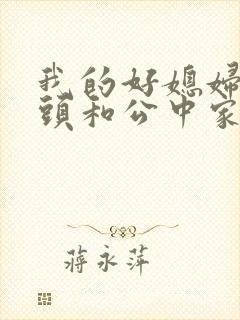 我的好媳婦
頭和公中家
蔣永萍